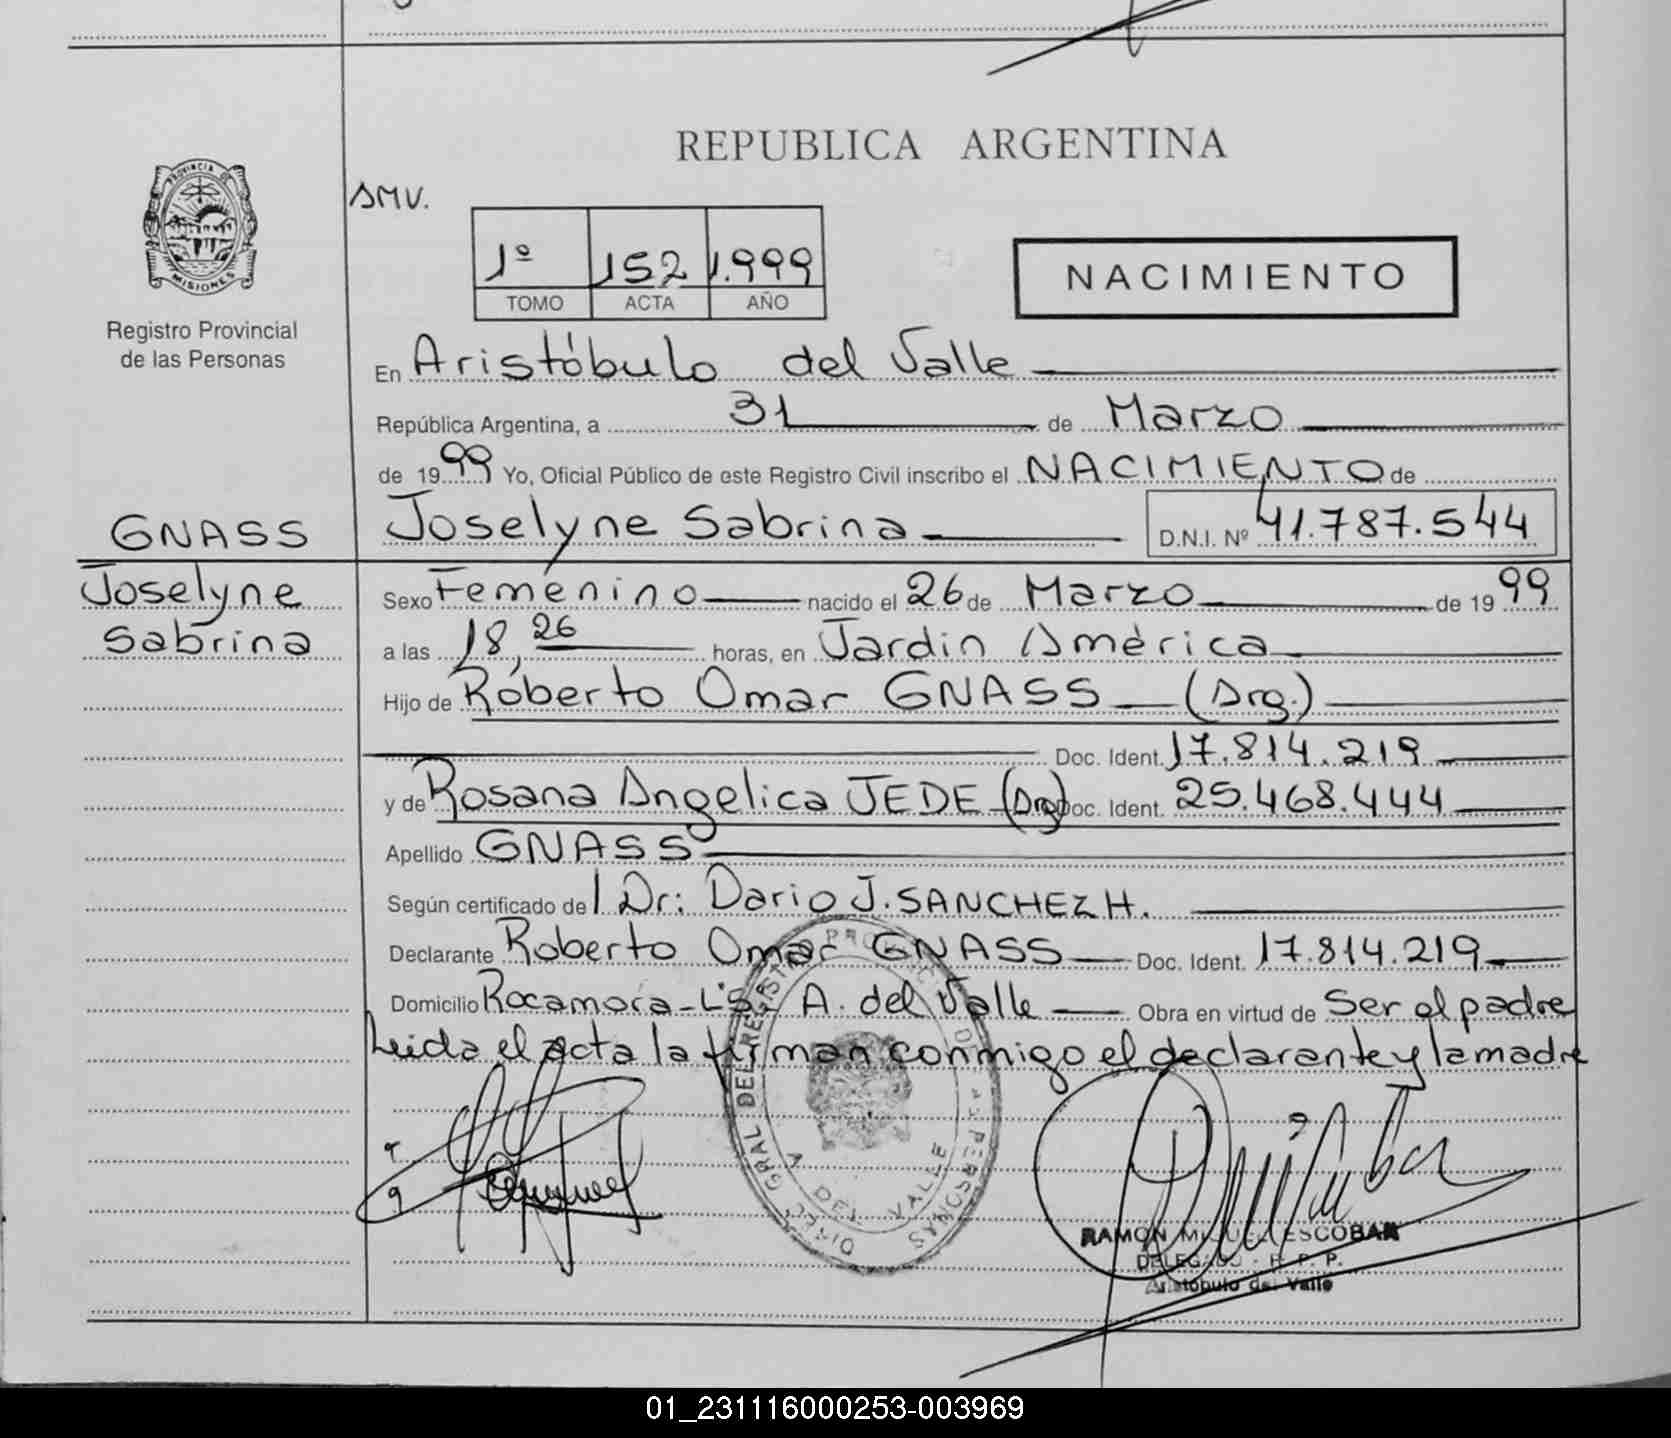 REPUBLICA ARGENTINA
PROVINCIA DE
MISIONES
Registro Provincial
de las Personas
AMV.
1º 152 1.999
TOMO ACTA AÑO
NACIMIENTO
En Aristóbulo del Valle
República Argentina, a 31 de Marzo
de 1999 Yo, Oficial Público de este Registro Civil inscribo el NACIMIENTO de
GNASS
Joselyne Sabrina D.N.I. Nº 41.787.544
Joselyne
Sabrina
Sexo Femenino nacido el 26 de Marzo de 1999
a las 18,26 horas, en Jardin América
Hijo de Roberto Omar GNASS (Arg.)
Doc. Ident. 17.814.219
y de Rosana Angelica JEDE (Arg) Doc. Ident. 25.468.444
Apellido GNASS
Según certificado del Dr: Dario J. SANCHEZ H.
Declarante Roberto Omar GNASS Doc. Ident. 17.814.219
Domicilio Rocamora - L'S. A. del Valle Obra en virtud de Ser el padre
Leida el acta la firman conmigo el declarante y la madre
DIREC. GRAL DEL REGISTRO PROVINCIAL DE LAS PERSONAS
A DEL VALLE
RAMON MIGUEL ESCOBAR
DELEGADO - R. P. P.
Aristobulo del Valle
01_231116000253-003969